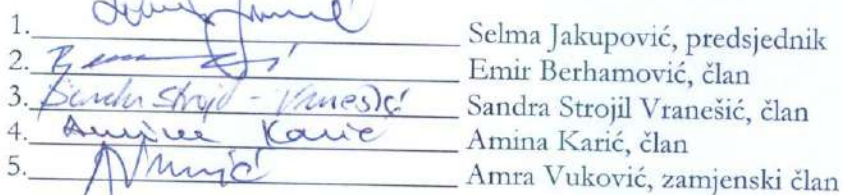 1. Selma Jakupović, predsjednik
2. Emir Berhamović, član
3. Sandra Strojil - Vranešić Sandra Strojil Vranešić, član
4. Amina Karić Amina Karić, član
5. Amra Vuković, zamjenski član